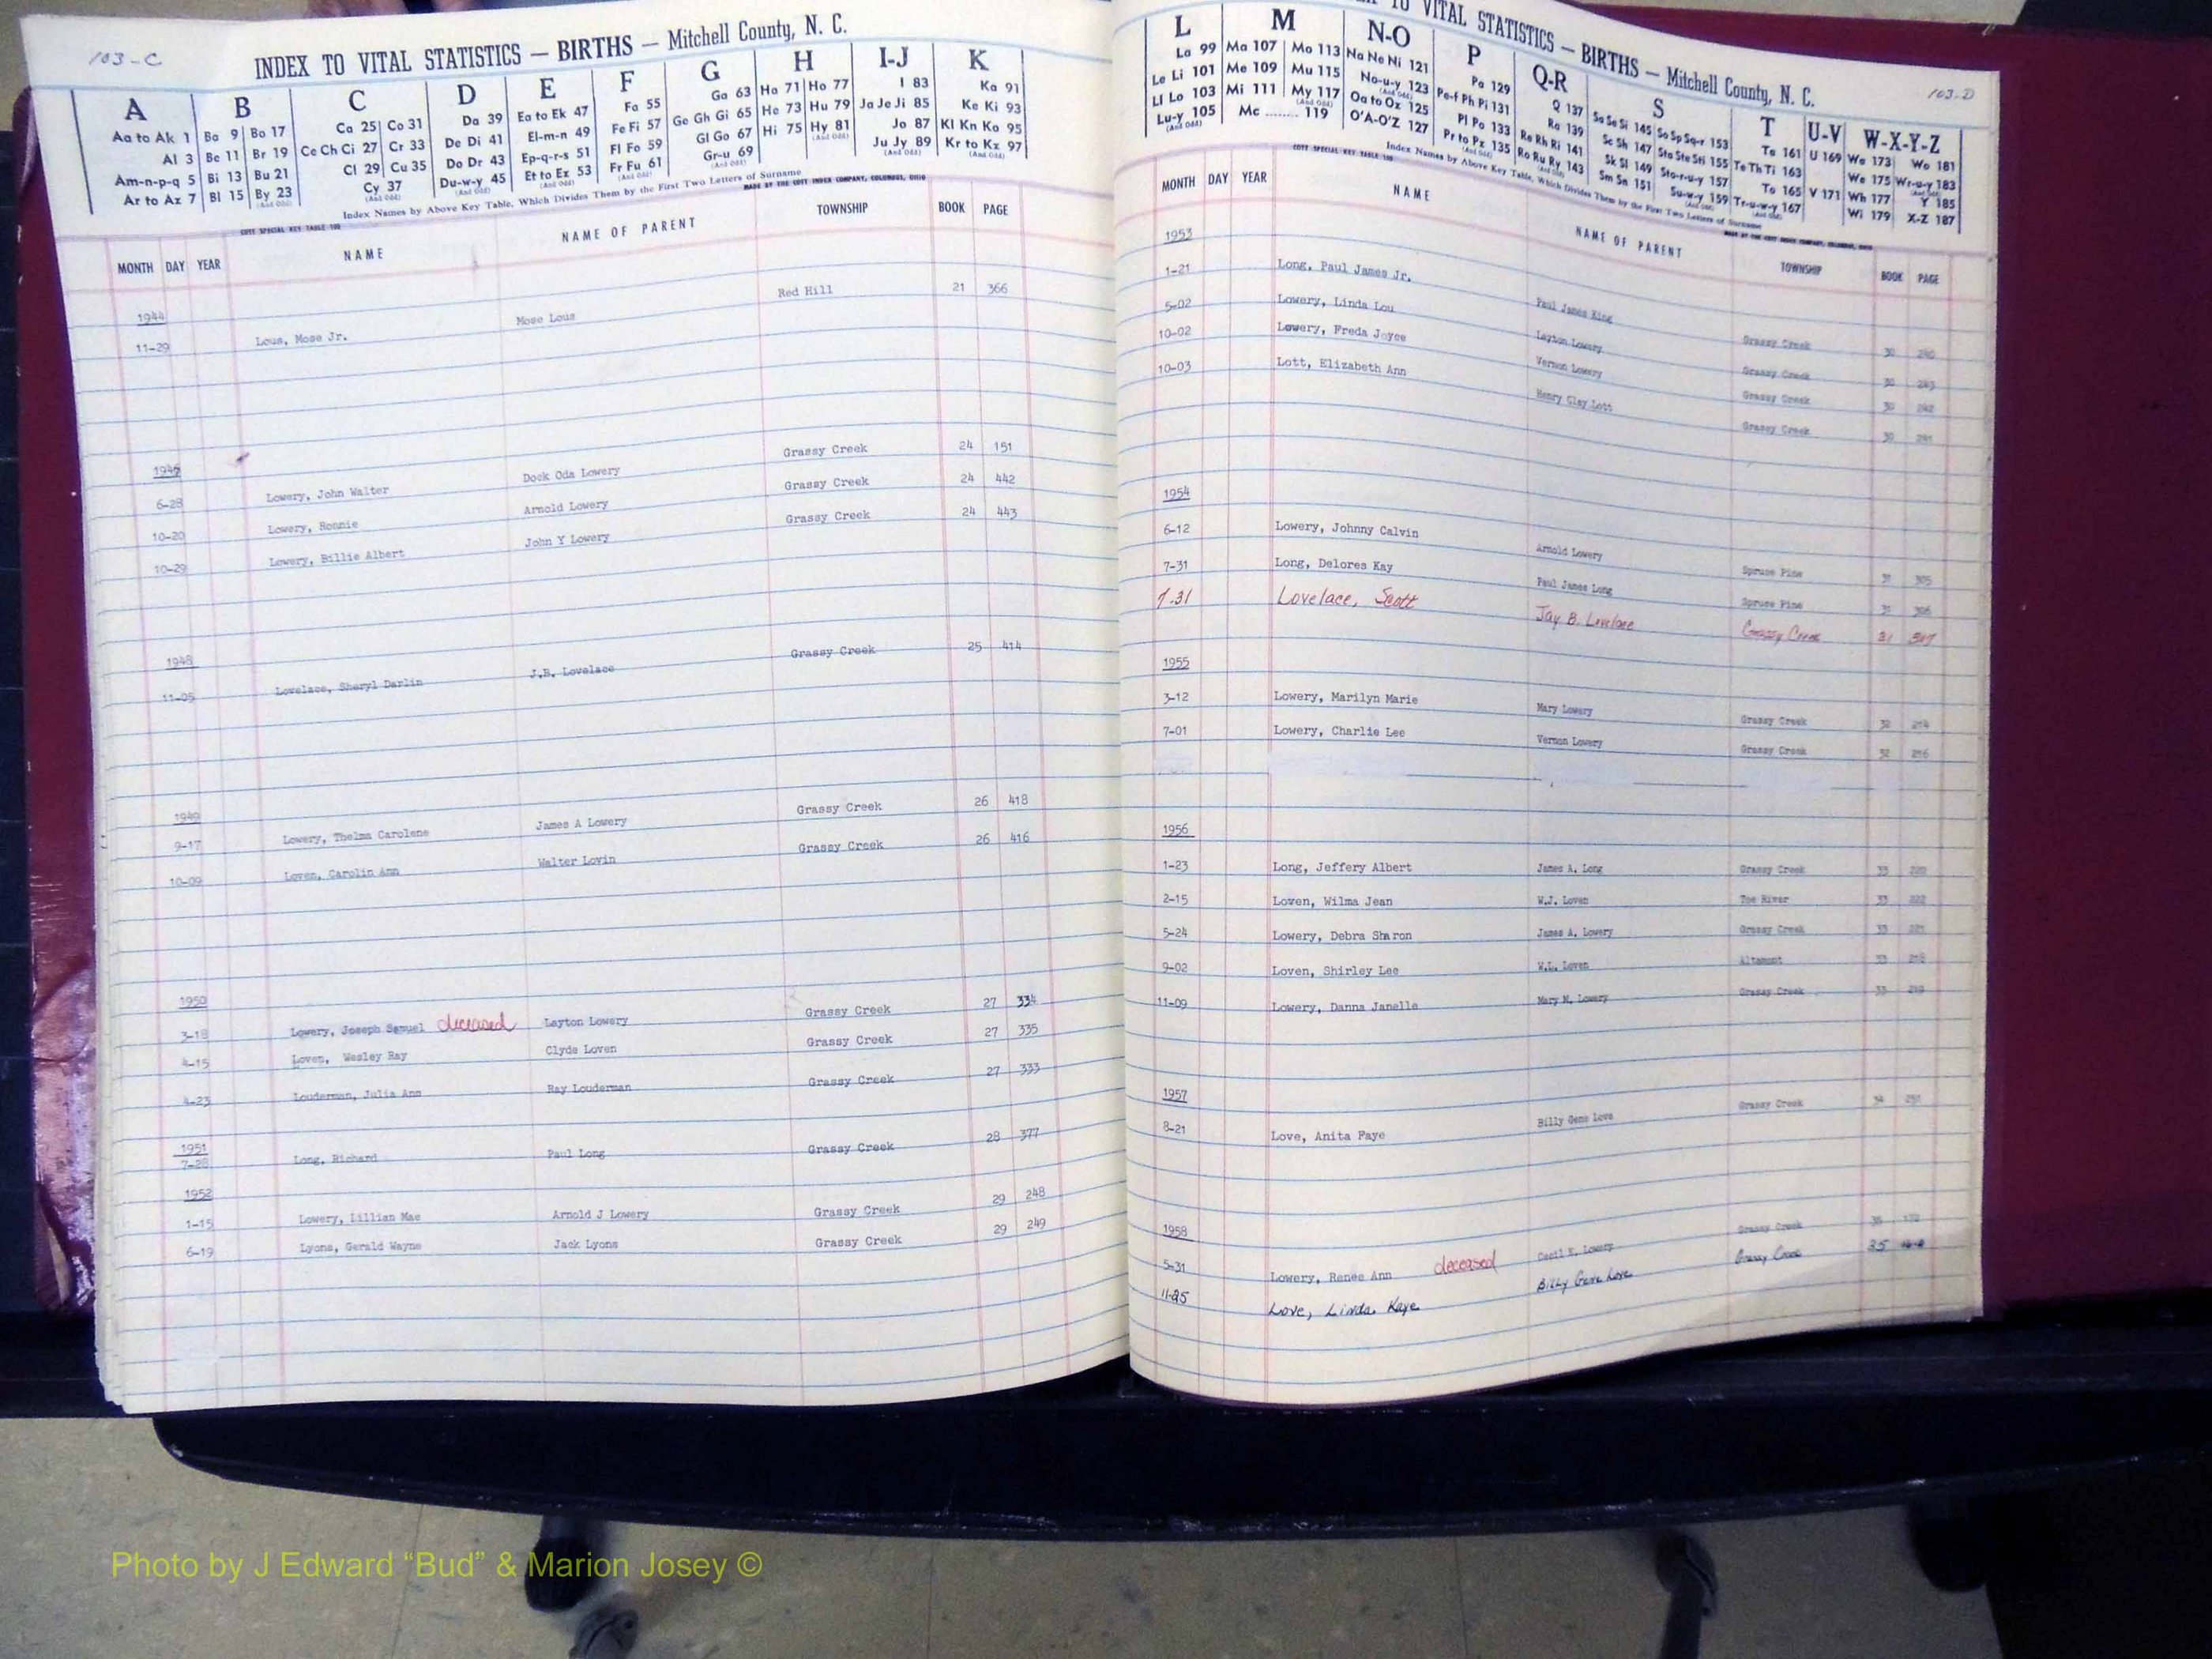 103-C
INDEX TO VITAL STATISTICS — BIRTHS — Mitchell County, N. C.
A B C D E F G H I-J K
Aa to Ak 1 Ba 9 Bo 17 Ca 25 Co 31 Da 39 Ea to Ek 47 Fa 55 Ga 63 Ha 71 Ho 77 I 83 Ka 91
Al 3 Be 11 Br 19 Ce Ch Ci 27 Cr 33 De Di 41 El-m-n 49 Fe Fi 57 Ge Gh Gi 65 He 73 Hu 79 Ja Je Ji 85 Ke Ki 93
Am-n-p-q 5 Bi 13 Bu 21 Cl 29 Cu 35 Do Dr 43 Ep-q-r-s 51 Fl Fo 59 Gl Go 67 Hi 75 Hy 81 (And Odd) Jo 87 Kl Kn Ko 95
Ar to Az 7 Bl 15 By 23 (And Odd) Cy 37 (And Odd) Du-w-y 45 (And Odd) Et to Ez 53 (And Odd) Fr Fu 61 (And Odd) Gr-u 69 (And Odd) Ju Jy 89 (And Odd) Kr to Kz 97 (And Odd)
Index Names by Above Key Table, Which Divides Them by the First Two Letters of Surname
COTT SPECIAL KEY TABLE 100 MADE BY THE COTT INDEX COMPANY, COLUMBUS, OHIO
MONTH DAY YEAR NAME NAME OF PARENT TOWNSHIP BOOK PAGE
1944
11-29 Lous, Mose Jr. Mose Lous Red Hill 21 366
6-28 Lowery, John Walter Dock Oda Lowery Grassy Creek 24 151
10-20 Lowery, Ronnie Arnold Lowery Grassy Creek 24 442
10-29 Lowery, Billie Albert John Y Lowery Grassy Creek 24 443
1948
11-05 Lovelace, Sheryl Darlin J.B. Lovelace Grassy Creek 25 414
1949
9-17 Lowery, Thelma Carolene James A Lowery Grassy Creek 26 418
10-09 Loven, Carolin Ann Walter Lovin Grassy Creek 26 416
1950
3-18 Lowery, Joseph Samuel deceased Layton Lowery Grassy Creek 27 334
4-15 Loven, Wesley Ray Clyde Loven Grassy Creek 27 335
4-23 Louderman, Julia Ann Ray Louderman Grassy Creek 27 333
1951
7-28 Long, Richard Paul Long Grassy Creek 28 377
1952
1-15 Lowery, Lillian Mae Arnold J Lowery Grassy Creek 29 248
6-19 Lyons, Gerald Wayne Jack Lyons Grassy Creek 29 249
TO VITAL STATISTICS — BIRTHS — Mitchell County, N. C.
103-D
L M N-O P Q-R S T U-V W-X-Y-Z
La 99 Ma 107 Mo 113 Na Ne Ni 121 Pa 129 Q 137 Sa Se Si 145 So Sp Sq-r 153 Ta 161 U 169 Wa 173 Wo 181
Le Li 101 Me 109 Mu 115 No-u-y 123 (And Odd) Pe-f Ph Pi 131 Ra 139 Sc Sh 147 Sta Ste Sti 155 Te Th Ti 163 We 175 Wr-u-y 183 (And Odd)
Ll Lo 103 Mi 111 My 117 (And Odd) Oa to Oz 125 Pl Po 133 Re Rh Ri 141 Sk Sl 149 Sto-r-u-y 157 To 165 V 171 Wh 177 Y 185
Lu-y 105 (And Odd) Mc ........ 119 O'A-O'Z 127 Pr to Pz 135 (And Odd) Ro Ru Ry 143 Sm Sn 151 Su-w-y 159 (And Odd) Tr-u-w-y 167 (And Odd) Wi 179 X-Z 187
COTT SPECIAL KEY TABLE 100 Index Names by Above Key Table, Which Divides Them by the First Two Letters of Surname
MADE BY THE COTT INDEX COMPANY, COLUMBUS, OHIO
MONTH DAY YEAR NAME NAME OF PARENT TOWNSHIP BOOK PAGE
1953
1-21 Long, Paul James Jr. Paul James King Grassy Creek 30 240
5-02 Lowery, Linda Lou Layton Lowery Grassy Creek 30 243
10-02 Lowery, Freda Joyce Vernon Lowery Grassy Creek 30 242
10-03 Lott, Elizabeth Ann Henry Clay Lott Grassy Creek 30 241
1954
6-12 Lowery, Johnny Calvin Arnold Lowery Spruce Pine 31 305
7-31 Long, Delores Kay Paul James Long Spruce Pine 31 306
7-31 Lovelace, Scott Jay B. Lovelace Grassy Creek 31
1955
3-12 Lowery, Marilyn Marie Mary Lowery Grassy Creek 32 214
7-01 Lowery, Charlie Lee Vernon Lowery Grassy Creek 32 216
1956
1-23 Long, Jeffery Albert James A. Long Grassy Creek 33 220
2-15 Loven, Wilma Jean W.J. Loven Toe River 33 222
5-24 Lowery, Debra Sharon James A. Lowery Grassy Creek 33 221
9-02 Loven, Shirley Lee W.L. Loven Altamont 33 218
11-09 Lowery, Danna Janelle Mary M. Lowery Grassy Creek 33 219
1957
8-21 Love, Anita Faye Billy Gene Love Grassy Creek 34 251
1958
5-31 Lowery, Renee Ann deceased Cecil E. Lowery Grassy Creek 35
11-25 Love, Linda Kaye Billy Gene Love Grassy Creek 35
Photo by J Edward “Bud” & Marion Josey ©